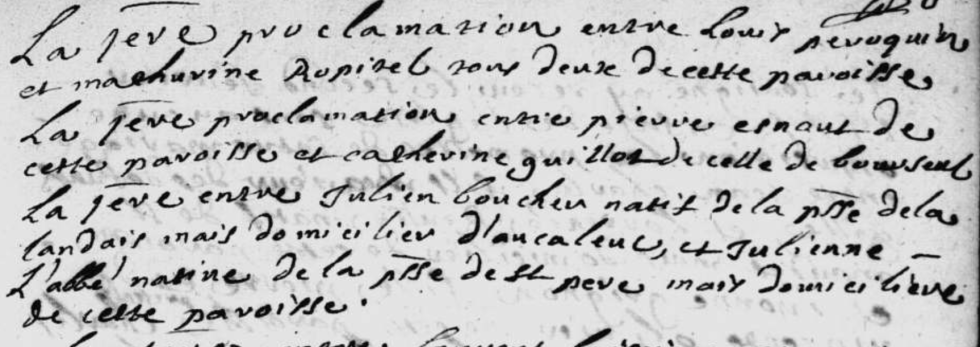 La 1ere proclamation entre Louis peroquin
et mathurine Ropitel tous deux de cette paroisse
La 1ere proclamation entre pierre esnaut de
cette paroisse et catherine guillot de celle de bourseul
La 1ere entre Julien boucher natif de la psse de la
landais mais domicilier d'aucaleuc, et Julienne
L'abbé native de la psse de St pere mais domiciliere
de cette paroisse.